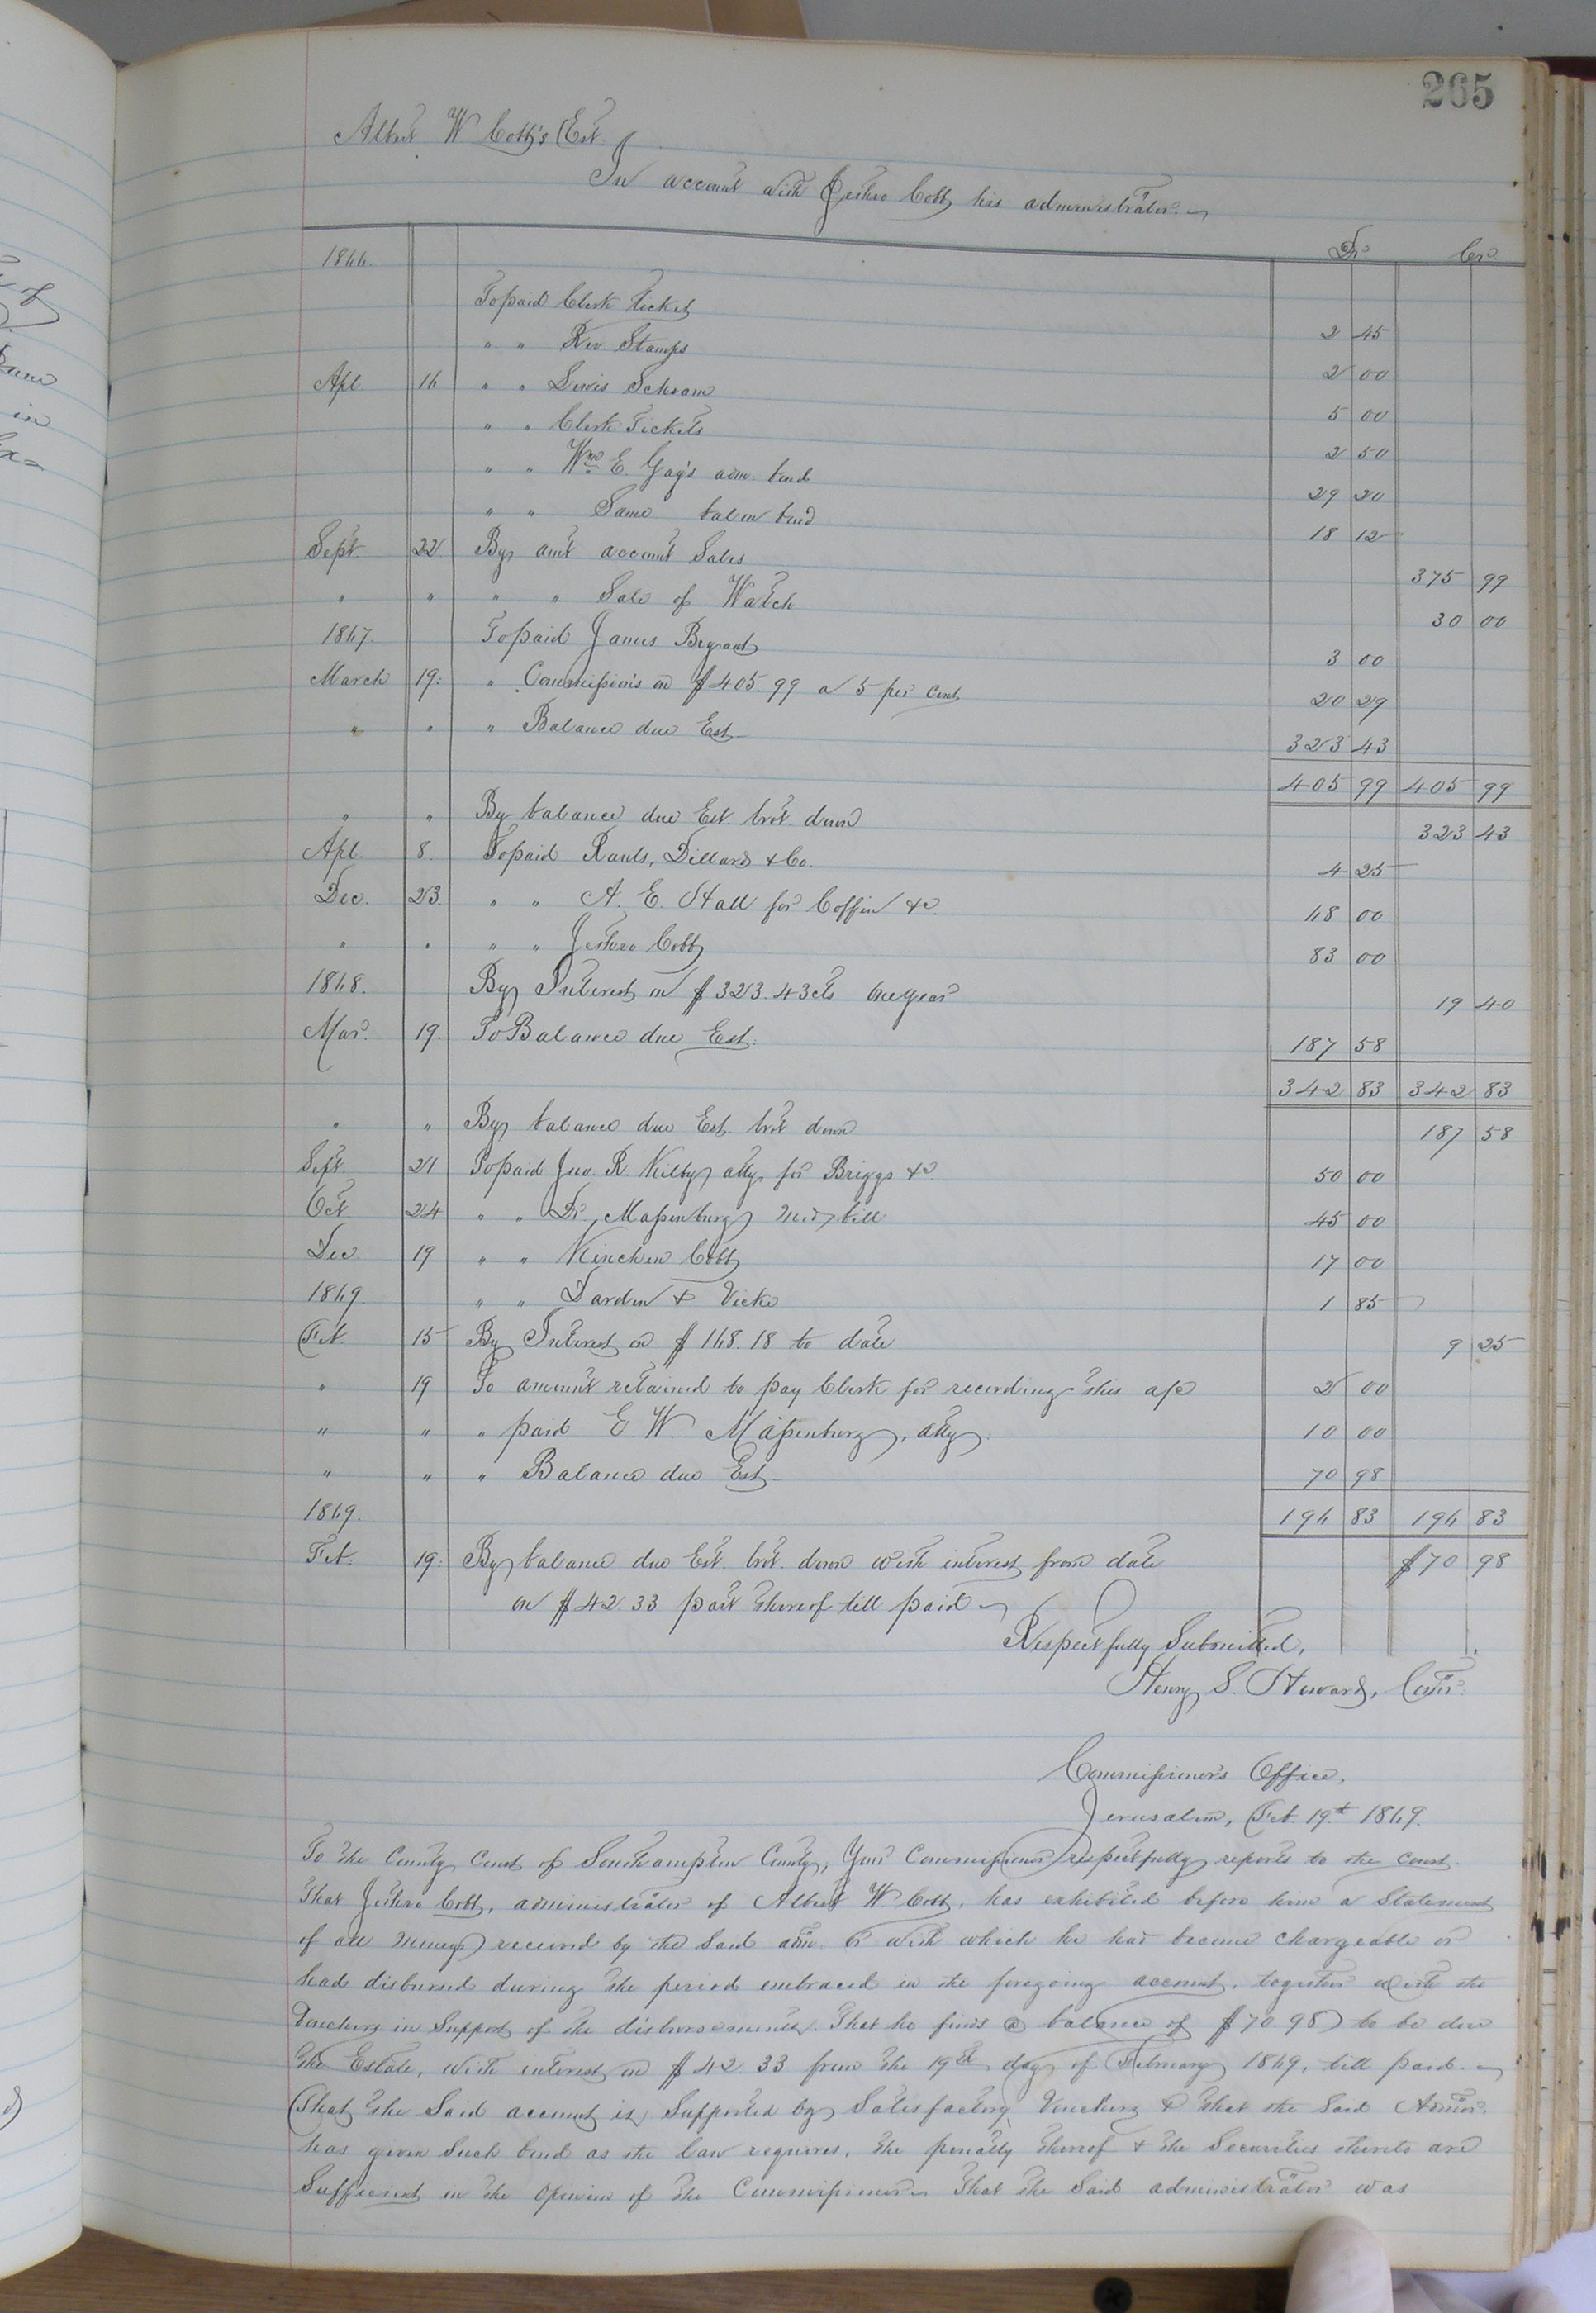 265
Albert W Cobb's Est.
In account with Jethro Cobb, his administrator.
Dr Cr
1866.
To paid Clerk ticket 2 45
" " Rev. Stamps 2 00
Apl. 16 " " Lewis Schram 5 00
" " Clerk Tickets 2 50
" " Wm E. Gay's adm. bond 29 20
" " Same bal on bond 18 12
Sept 22 By amt account Sales 375 99
" " " " Sale of Watch 30 00
1867. To paid James Bryant 3 00
March 19. " Commission's on $405.99 a 5 per cent 20 29
" " " Balance due Est. 323 43
405 99 405 99
" " By balance due Est. brot. down 323 43
Apl. 8. To paid Rawls, Dillard & Co. 4 25
Dec. 23. " " A. E. Hall for Coffin &c. 68 00
" " " " Jethro Cobb 83 00
1868. By Interest on $323.43cts One year 19 40
Mar. 19. To Balance due Est. 187 58
342 83 342 83
" " By balance due Est. brot down 187 58
Sept. 21 To paid Jno. R. Kilby atty. for Briggs &c. 50 00
Oct. 24 " " Dr. Massenburg Med bill 45 00
Dec. 19 " " Kinchen Cobb 17 00
1869. " " Darden & Vicks 1 85
Feb. 15 By Interest on $168.18 to date 9 25
" 19 To amount retained to pay Clerk for recording this a/c 2 00
" " " paid E. W. Massenburg, atty. 10 00
" " " Balance due Est. 70 98
1869. 196 83 196 83
Feb. 19. By balance due Est. brot. down with interest from date $70 98
on $42.33 part thereof till paid
Respectfully Submitted,
Henry S. Howard, Comr.
Commissioner's Office,
Jerusalem, Feb. 19th 1869.
To the County Court of Southampton County, Your Commissioner respectfully reports to the court
that Jethro Cobb, administrator of Albert W Cobb, has exhibited before him a Statement
of all moneys received by the Said adm. or with which he had become chargeable or
had disbursed during the period embraced in the foregoing account, together with the
Vouchers in Support of the disbursements. That he finds a balance of $70.98 to be due
the Estate, with interest on $42 33 from the 19th day of February 1869, till paid.
That the Said account is Supported by Satisfactory Vouchers & that the Said Admor.
has given Such bond as the law requires, the penalty thereof & the Securities thereto are
Sufficient in the Opinion of the Commissioner. That the Said administrator was